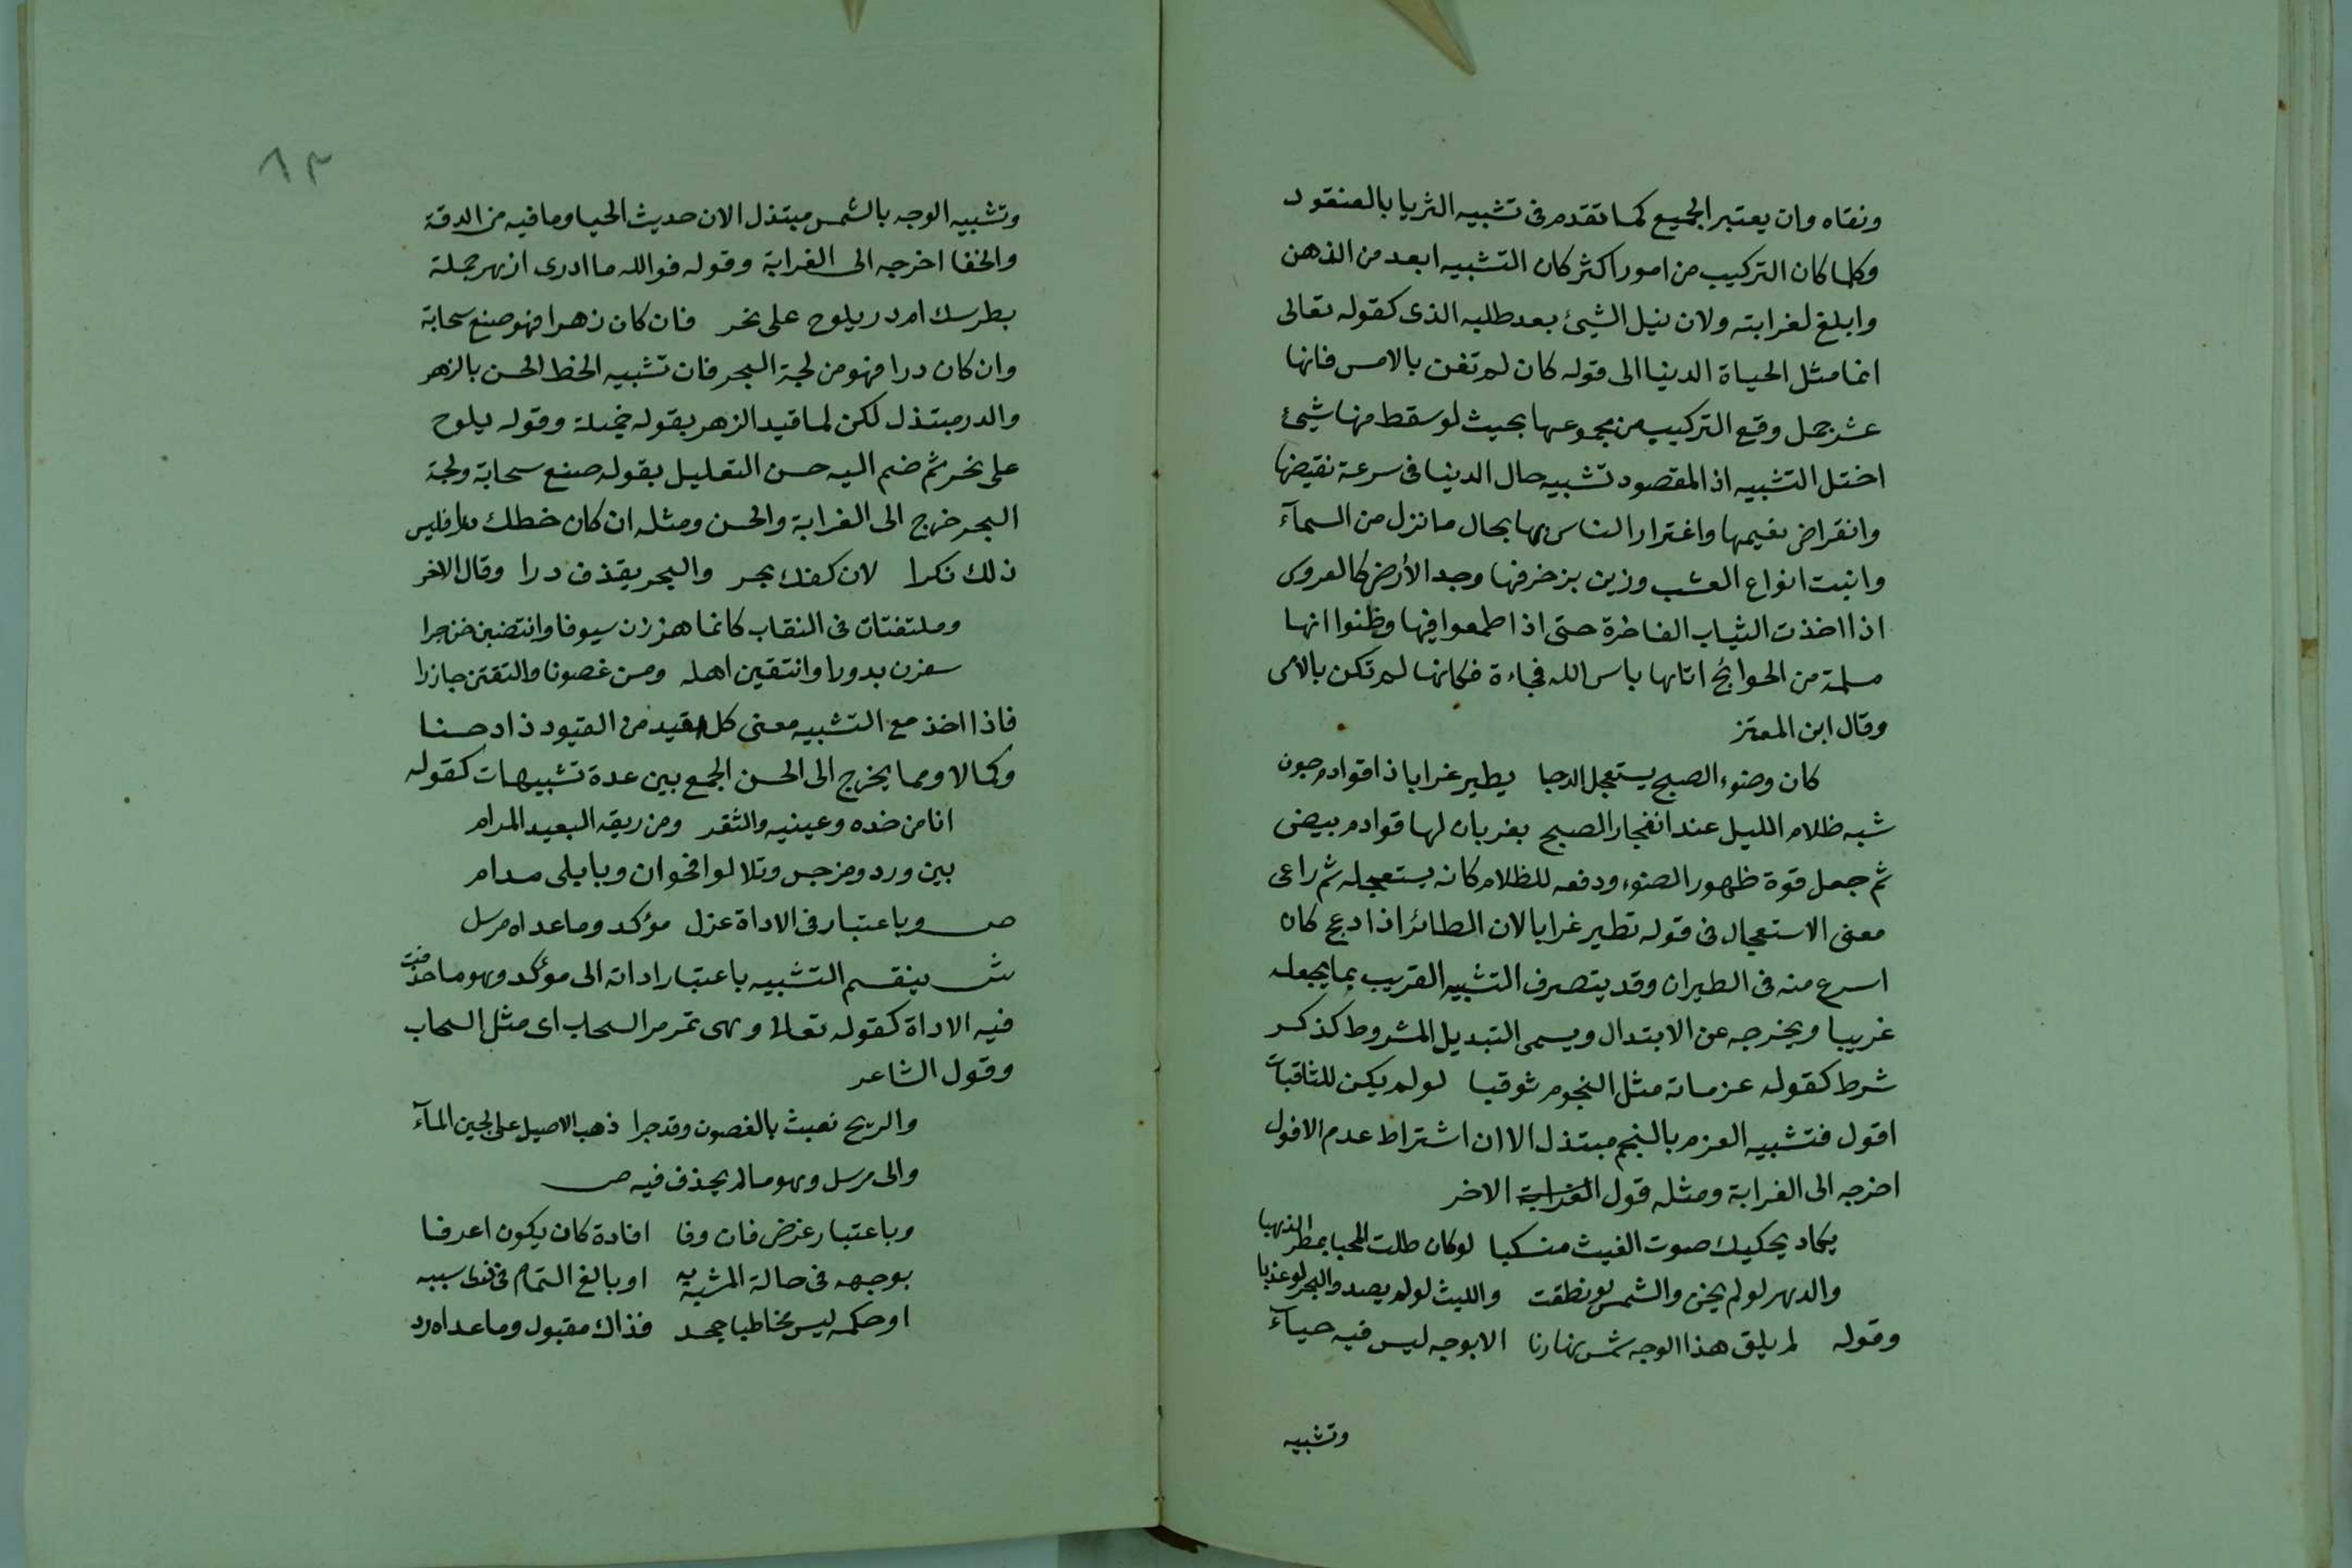 ونفاه وان يعتبر الجميع كما تقدم فى تشبيه الثريا بالعنقود
وكلما كان التركيب من امور اكثر كان التشبيه ابعد من الذهن
وابلغ لغرابته ولان نيل الشيئ بعد طلبه الذى كقوله تعالى
انما مثل الحياة الدنيا الى قوله كان لم تغن بالامس فانها
عشر جمل وقع التركيب من مجموعها بحيث لو سقط منها شيئ
اختل التشبيه اذ المقصود تشبيه حال الدينا فى سرعة نقيضها
وانقراض نعيمها واغترار الناس بها بحال ما نزل من السمآء
وانبت انواع العشب وزين بزخرفها وجه الأرض كالعروس
اذا اخذت الثياب الفاخرة حتى اذا طمعوا فيها وظنوا انها
مسلمة من الحوائج اتاها باس الله فجاءة فكانها لم تكن بالامس
وقال ابن المعتز
كان وضوء الصبح يستعجل الدجا يطير غرابا ذا قوادم جون
شبه ظلام الليل عند انفجار الصبح بغربان لها قوادم بيض
ثم جعل قوة ظهور الضوء ودفعه للظلام كانه يستعجله ثم راعى
معنى الاستعجال فى قوله تطير غرابا لان الطائر اذا ادعج كان
اسرع منه فى الطيران وقد يتصرف التشبيه القريب بما يجعله
غريبا ويخرجه عن الابتدال ويسمى التبديل المشروط كذكر
شرط كقوله عزماته مثل النجوم ثوقبا لو لم يكن للثاقبات
اقول فتشبيه العزم بالنجم مبتذل الا ان اشتراط عدم الافول
اخرجه الى الغرابة ومثله قول الغرابة الاخر
يكاد يحكيك صوت الغيث منسكبا لو كان طلت المحيا يمطر الذهبا
والدهر لو لم يخن والشمس لو نطقت والليث لو لم يصد والبحر لو عذبا
وقوله لم يلق هذا الوجه شمس نهارنا الا بوجه ليس فيه حيآء
وتشبيه
٨٣
وتشبيه الوجه بالشمس مبتذل الان حديث الحيا وما فيه من الدقة
والخفا اخرجه الى الغرابة وقوله فوالله ما ادرى ازهر خميلة
بطرسك ام در يلوح على نحر فان كان زهرا فهو صنع سحابة
وان كان درا فهو من لجة البحر فان تشبيه الخط الحسن بالزهر
والدر مبتذل لكن لما قيد الزهر بقوله خميلة وقوله يلوح
على نحر ثم ضم اليه حسن التعليل بقوله صنع سحابة ولجة
البحر خرج الى الغرابة والحسن ومثله ان كان خطك درا فليس
ذلك نكرا لان كفك بحر والبحر يقذف درا وقال الاخر
وملتفتات فى النقاب كانما هززن سيوفا وانتضين خنجرا
سفرن بدورا وانتقين اهله ومسن غصونا والتفتن جازرا
فاذا اخذ مع التشبيه معنى كل مقيد من القيود زاد حسنا
وكمالا ومما يخرج الى الحسن الجمع بين عدة تشبيهات كقوله
انا من خده وعينيه والثغر ومن ريقه البعيد المرام
بين ورد ونرجس وتلالو اقحوان وبابلى مدام
ص وباعتبار فى الاداة عزل مؤكد وما عداه مرسل
ش ينقسم التشبيه باعتبار اداته الى مؤكد وهو ما حذفت
فيه الاداة كقوله تعالى وهى تمر مر السحاب اى مثل السحاب
وقول الشاعر
والريح تعبث بالغصون وقد جرا ذهب الاصيل على لجين المآء
والى مرسل وهو ما لم يحذف فيه ص
وباعتبار غرض فان وفا افادة كان يكون اعرفا
بوجهه فى حالة المشبه به او بالغ التمام فى ذى سببه
او حكمه ليس مخاطبا جحد فذاك مقبول وما عداه رد